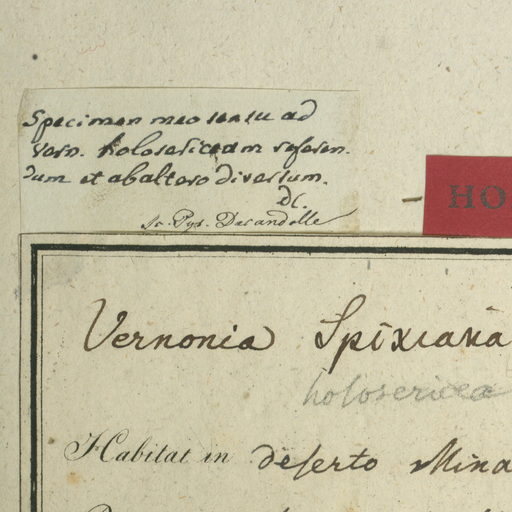 Specimen meo sensu ad
Vern. holosericeam referen-
dum et ab altero diversum.
DC.
sc. Pyr. Decandolle
HO
Vernonia Spixiana
holosericea
Habitat in deserto Mina